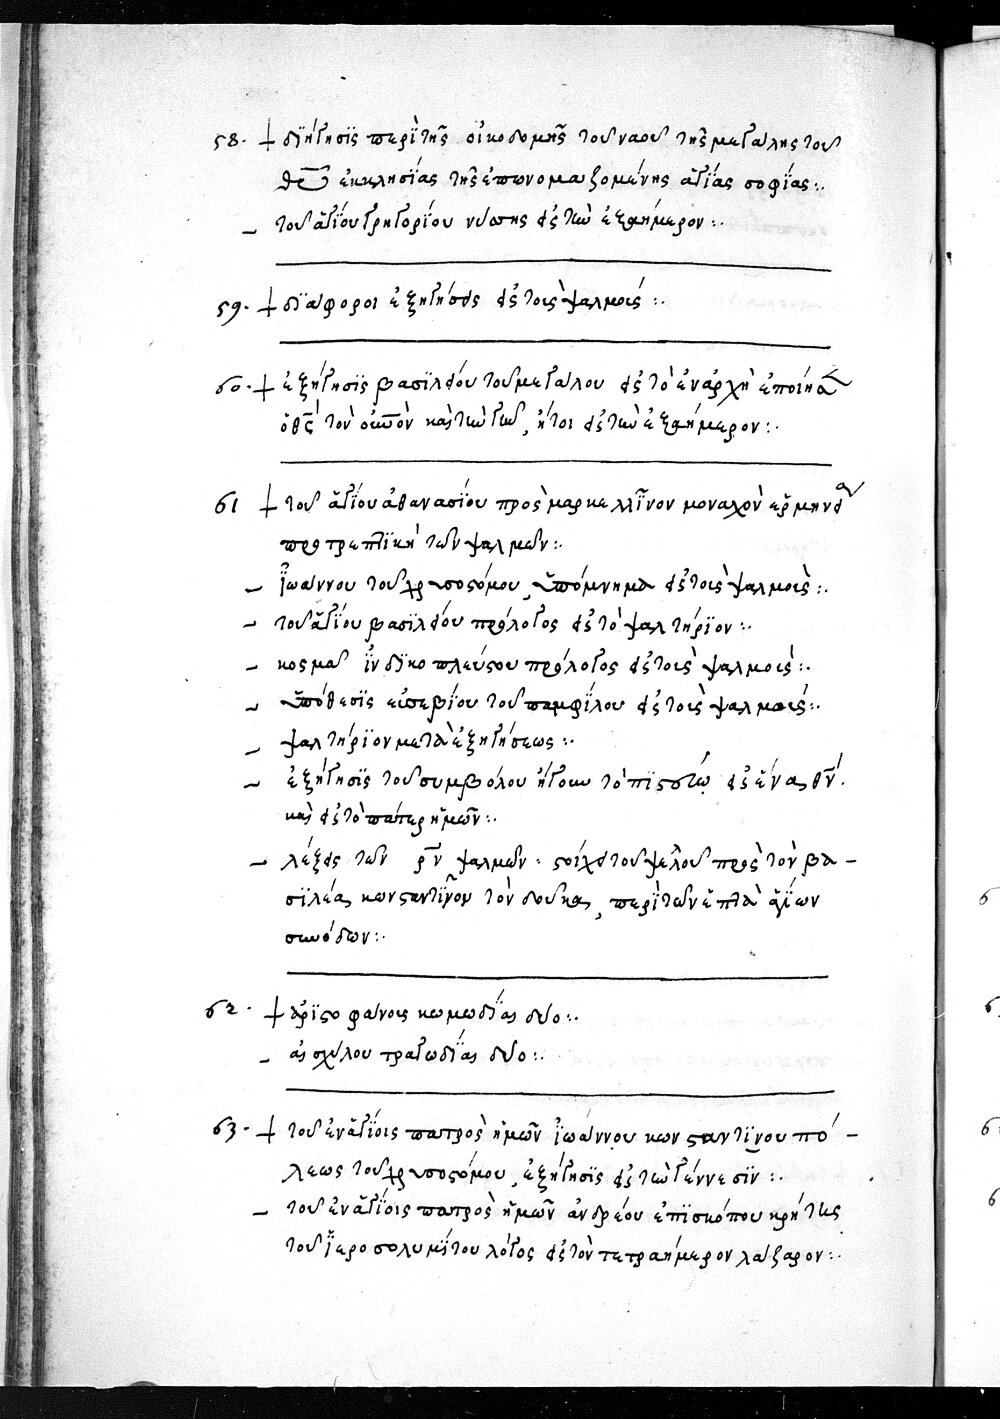 58. + διήγησις περὶ τῆς οἰκοδομῆς τοῦ ναοῦ τῆς μεγάλης τοῦ
θεοῦ ἐκκλησίας τῆς ἐπωνομαζομένης ἁγίας σοφίας:.
– τοῦ ἁγίου γρηγορίου νύσης εἰς τὴν ἑξαήμερον:.
59. + διάφοροι ἐξηγήσεις εἰς τοὺς ψαλμούς:.
60. + ἐξήγησις βασιλείου τοῦ μεγάλου εἰς τὸ ἐν ἀρχῇ ἐποίησεν
ὁ θς τὸν οὐνὸν καὶ τὴν γῆν, ἤτοι εἰς τὴν ἑξαήμερον:.
61 + τοῦ ἁγίου ἀθανασίου πρὸς μαρκελλῖνον μοναχὸν ἑρμηνεία
προτρεπτικὴ τῶν ψαλμῶν:.
– ἰωάννου τοῦ χρυσοστόμου, ὑπόμνημα εἰς τοὺς ψαλμούς:.
– τοῦ ἁγίου βασιλείου πρόλογος εἰς τὸ ψαλτήριον:.
– κοσμᾶ ἰνδικοπλεύστου πρόλογος εἰς τοὺς ψαλμούς:.
– ὑπόθεσις εὐσεβίου τοῦ παμφίλου εἰς τοὺς ψαλμούς:.
– ψαλτήριον μετὰ ἐξηγήσεως:.
– ἐξήγησις τοῦ συμβόλου ἤγουν τὸ πιστεύω εἰς ἕνα θν.
καὶ εἰς τὸ πάτερ ἡμῶν:.
– λέξεις τῶν ρν ψαλμῶν. στίχοι τοῦ ψελλοῦ πρὸς τὸν βα-
σιλέας κωνσταντῖνον τὸν δούκας, περὶ τῶν ἑπτὰ ἁγίων
συνόδων:.
62. + ἀριστοφάνους κωμωδίας δύο:.
– αἰσχύλου τραγωδίας δύο:.
63. + τοῦ ἐν ἁγίοις πατρὸς ἡμῶν ἰωάννου κωνσταντινουπό-
λεως τοῦ χρυσοστόμου, ἐξήγησις εἰς τὴν γέννεσιν:.
– τοῦ ἐν ἁγίοις πατρὸς ἡμῶν ἀνδρέου ἐπισκόπου κρήτης
τοῦ ἱεροσολυμίτου λόγος εἰς τὸν τετραήμερον λάζαρον:.